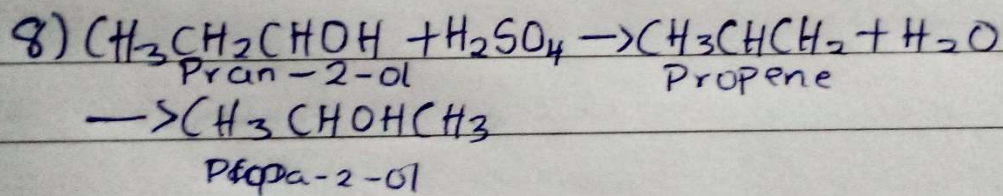 8) CH₃CH₂CHOH + H₂SO₄ → CH₃CHCH₂ + H₂O
Pran-2-ol Propene
→ CH₃CHOHCH₃